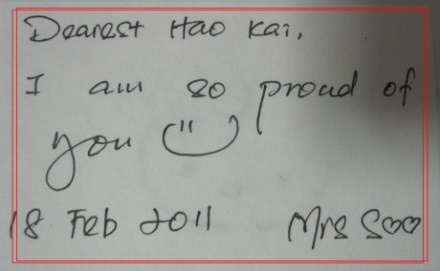 Dearest Hao Kai,
I am so proud of
you
18 Feb 2011 Mrs Soo